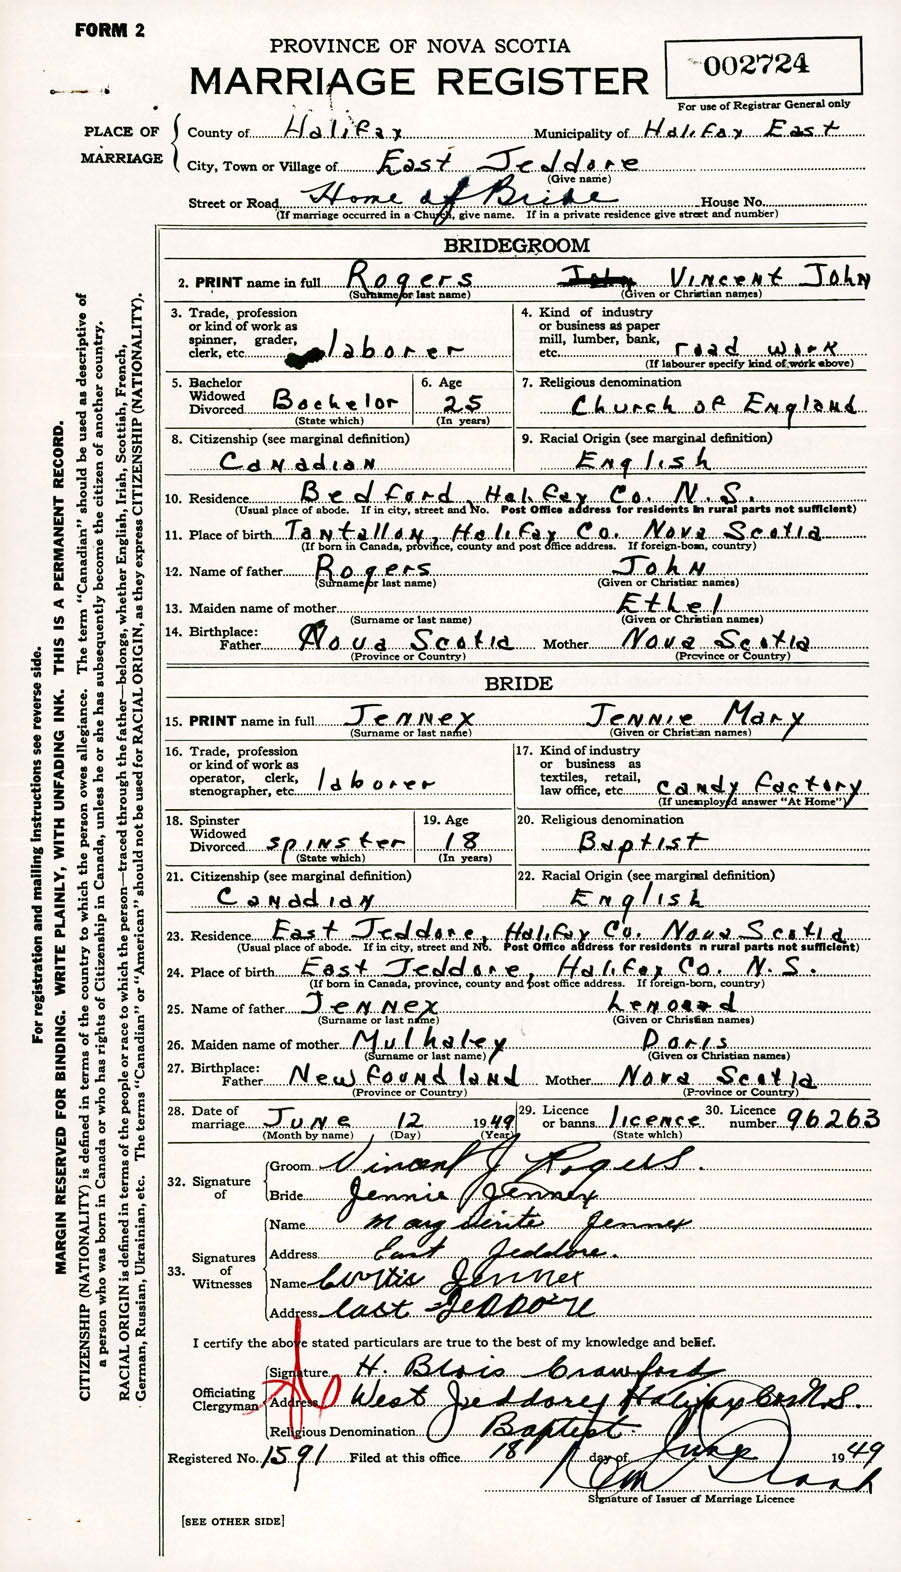 FORM 2
PROVINCE OF NOVA SCOTIA
MARRIAGE REGISTER
002724
For use of Registrar General only
PLACE OF MARRIAGE
County of Halifax Municipality of Halifax East
City, Town or Village of East Jeddore
(Give name)
Street or Road Home of Bride House No.
(If marriage occurred in a Church, give name. If in a private residence give street and number)
BRIDEGROOM
2. PRINT name in full Rogers John Vincent John
(Surname or last name) (Given or Christian names)
3. Trade, profession or kind of work as spinner, grader, clerk, etc. laborer
4. Kind of industry or business as paper mill, lumber, bank, etc. road work
(If labourer specify kind of work above)
5. Bachelor Widowed Divorced Bachelor
(State which)
6. Age 25
(In years)
7. Religious denomination
Church of England
8. Citizenship (see marginal definition)
Canadian
9. Racial Origin (see marginal definition)
English
10. Residence Bedford, Halifax Co. N.S.
(Usual place of abode. If in city, street and No. Post Office address for residents in rural parts not sufficient)
11. Place of birth Tantallon, Halifax Co. Nova Scotia
(If born in Canada, province, county and post office address. If foreign-born, country)
12. Name of father Rogers John
(Surname or last name) (Given or Christian names)
13. Maiden name of mother Ethel
(Surname or last name) (Given or Christian names)
14. Birthplace: Father Nova Scotia Mother Nova Scotia
(Province or Country) (Province or Country)
BRIDE
15. PRINT name in full Jennex Jennie Mary
(Surname or last name) (Given or Christian names)
16. Trade, profession or kind of work as operator, clerk, stenographer, etc. laborer
17. Kind of industry or business as textiles, retail, law office, etc. candy factory
(If unemployed answer "At Home")
18. Spinster Widowed Divorced spinster
(State which)
19. Age 18
(In years)
20. Religious denomination
Baptist
21. Citizenship (see marginal definition)
Canadian
22. Racial Origin (see marginal definition)
English
23. Residence East Jeddore, Halifax Co. Nova Scotia
(Usual place of abode. If in city, street and No. Post Office address for residents n rural parts not sufficient)
24. Place of birth East Jeddore, Halifax Co. N.S.
(If born in Canada, province, county and post office address. If foreign-born, country)
25. Name of father Jennex Lenoard
(Surname or last name) (Given or Christian names)
26. Maiden name of mother Mulhaley Doris
(Surname or last name) (Given or Christian names)
27. Birthplace: Father Newfoundland Mother Nova Scotia
(Province or Country) (Province or Country)
28. Date of marriage June 12 1949
(Month by name) (Day) (Year)
29. Licence or banns licence
(State which)
30. Licence number 96263
32. Signature of
Groom Vincent J Rogers.
Bride Jennie Jennex
33. Signatures of Witnesses
Name Marguerite Jennex
Address East Jeddore.
Name Curtis Jennex
Address East Jeddore
I certify the above stated particulars are true to the best of my knowledge and belief.
Officiating Clergyman
Signature H. Blois Crawford
Address West Jeddore, Halifax Co. N.S.
Religious Denomination Baptist
Registered No. 1591 Filed at this office 18 day of June 1949
Signature of Issuer of Marriage Licence
[SEE OTHER SIDE]
For registration and mailing instructions see reverse side.
MARGIN RESERVED FOR BINDING. WRITE PLAINLY, WITH UNFADING INK. THIS IS A PERMANENT RECORD.
CITIZENSHIP (NATIONALITY) is defined in terms of the country to which the person owes allegiance. The term "Canadian" should be used as descriptive of
a person who was born in Canada or who has rights of Citizenship in Canada, unless he or she has subsequently become the citizen of another country.
RACIAL ORIGIN is defined in terms of the people or race to which the person—traced through the father—belongs, whether English, Irish, Scottish, French,
German, Russian, Ukrainian, etc. The terms "Canadian" or "American" should not be used for RACIAL ORIGIN, as they express CITIZENSHIP (NATIONALITY).